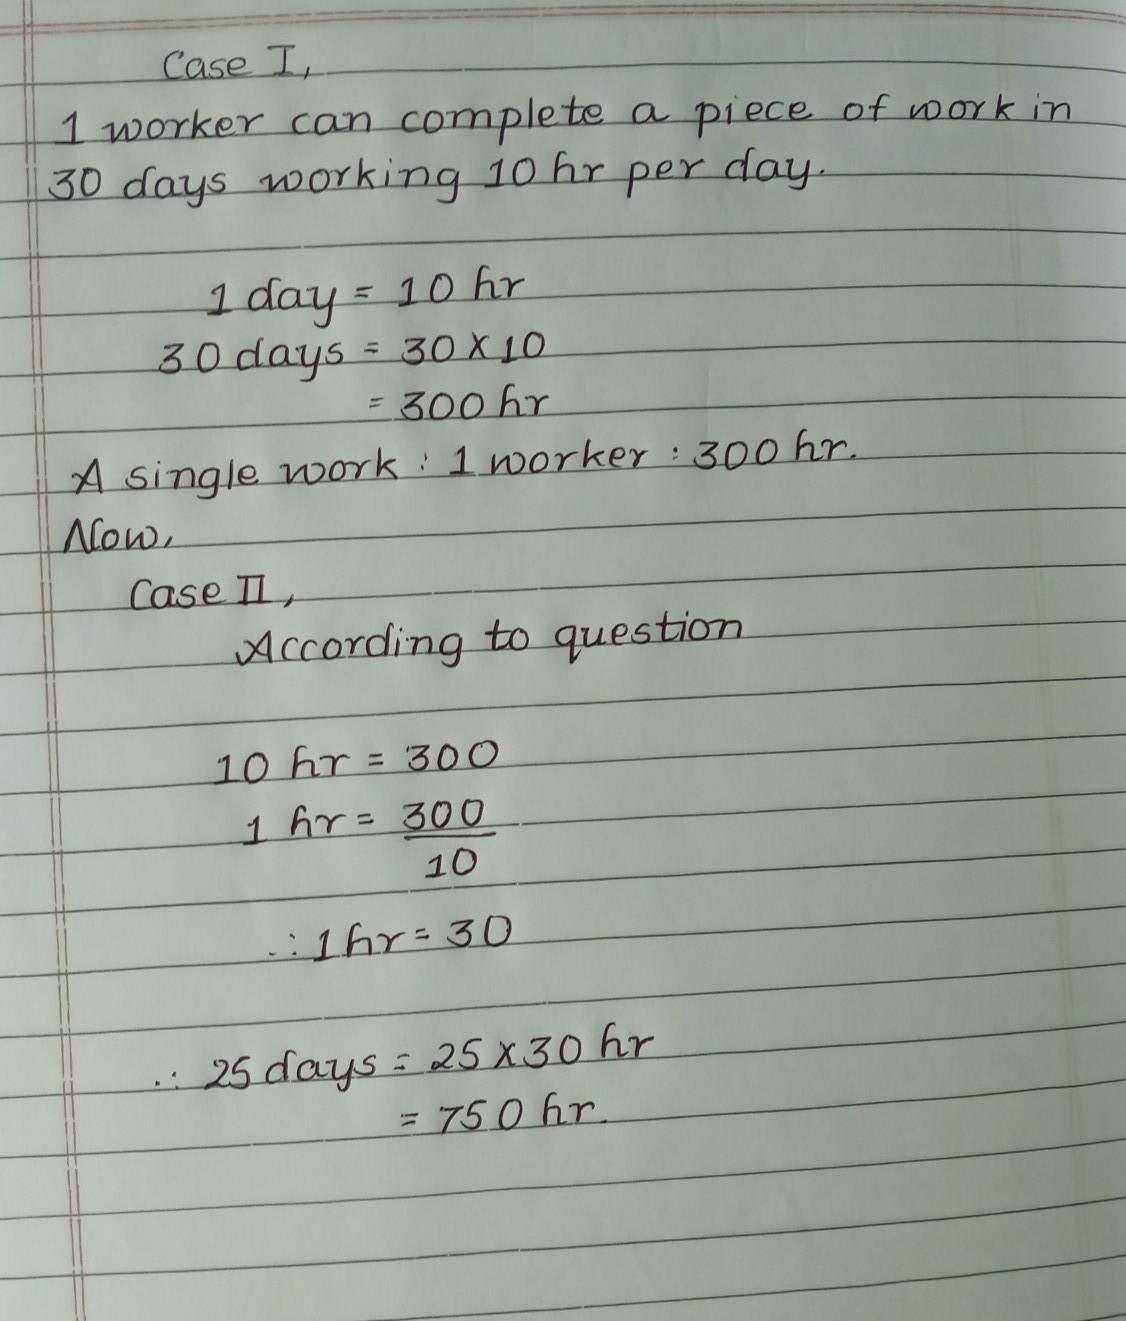 Case I,
1 worker can complete a piece of work in
30 days working 10 hr per day.
1 day = 10 hr
30 days = 30 × 10
= 300 hr
A single work : 1 worker : 300 hr.
Now,
Case II,
According to question
10 hr = 300
1 hr = 300
10
∴ 1 hr = 30
∴ 25 days = 25 × 30 hr
= 750 hr.